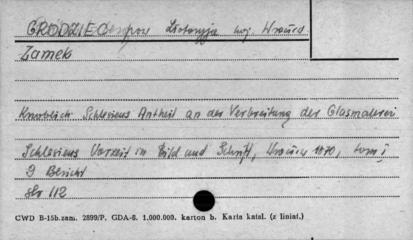 GRODZIEC pow Złotoryja woj. Wrocław
Zamek
Knoblich Schlesiens Antheil an der Verbreitung der Glasmalerei
Schlesiens Vorzeit in Bild und Schrift, Wrocław 1870, tom I
9 Bericht
str 112
CWD B-15b.zam. 2899/P. GDA-8. 1.000.000. karton b. Karta katal. (z liniat.)